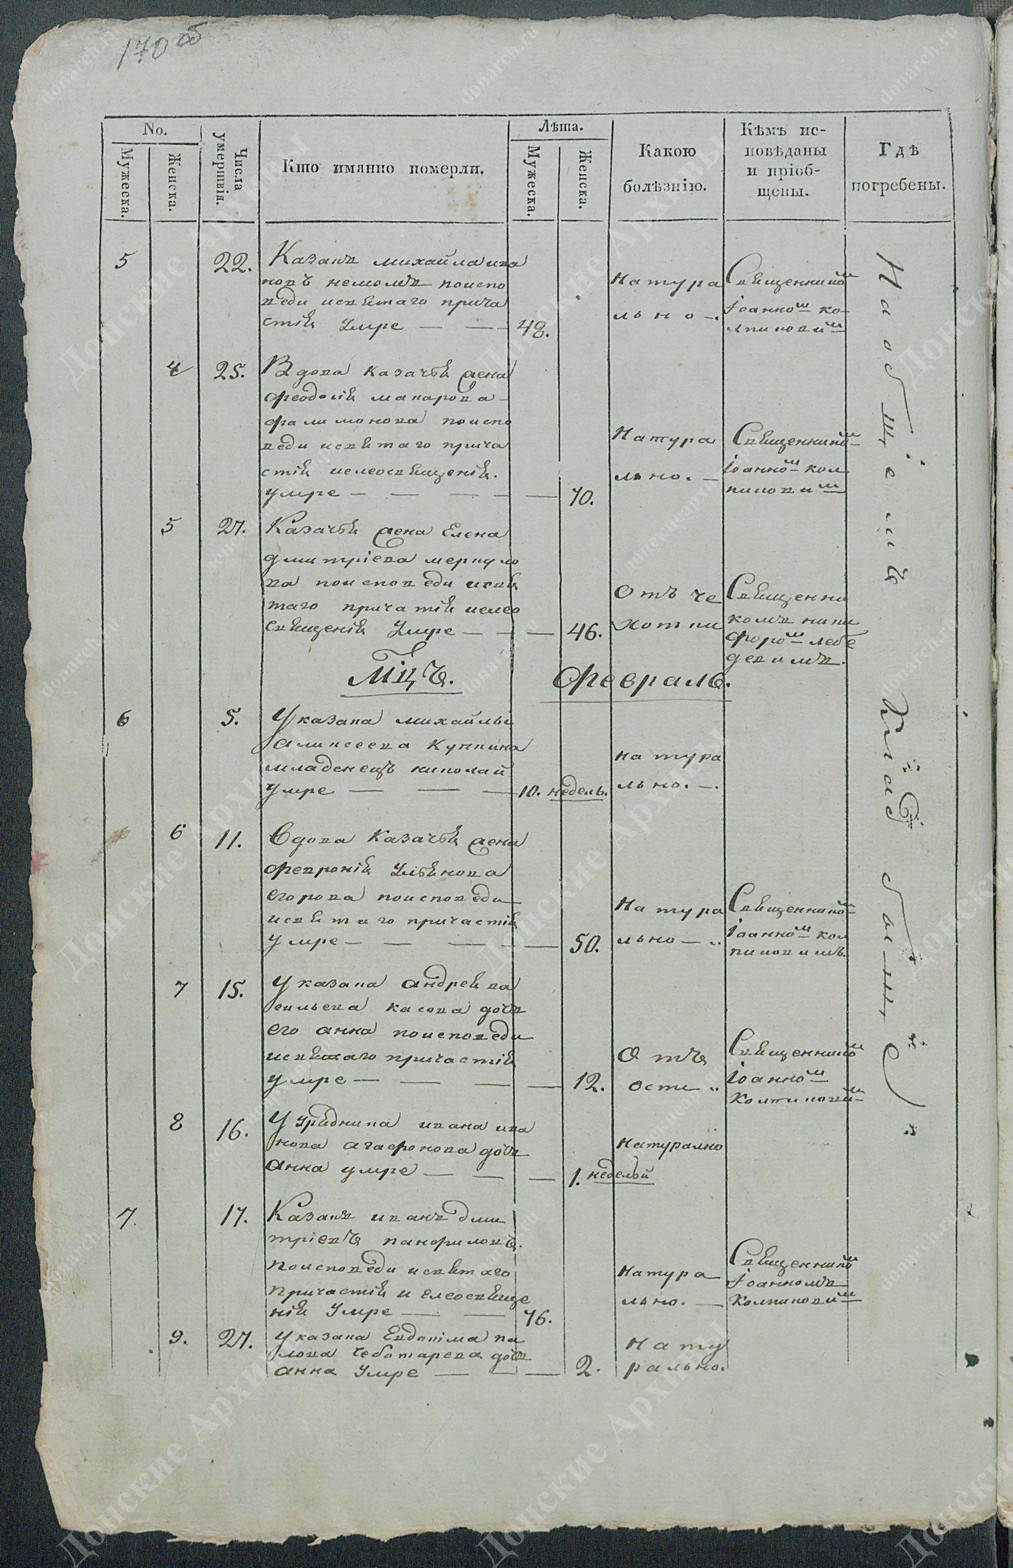 170 об
No.
Мужеска.
Женска.
Числа умерших.
Кто имянно померли.
Лѣта.
Мужеска.
Женска.
Какою болѣзнію.
Кѣмъ исповѣданы и пріобщены.
Гдѣ погребены.
5 22. Казакъ михайла ива
новъ поиспо
веди исвятаго прича
стія Умре — — 48.
натура
льно.
Священнико
Іоанномъ ко
лпиковим
На общемъ кладбищѣ
4 25. Вдова казачья жена
феодосія макарова
филимонова поиспо
веди исвятаго прича
стія иелеосвященія.
умре — — — — 70.
Натура
льно. —
Священнико
Іоанномъ кол
пиковим
5 27. Казачья жена Елена
дмитріева меркуло
ва поисповеди исвя
таго причастія иелео
священія Умре — — — 46.
Отъ че
хотки
Священни
комъ ники
форомъ лебе
девимъ.
Мцъ. Февраль.
6 5. Указака михайлы
алексеева
младенецъ николай
умре — — — 10. недель.
натура
льно. —
6 11. Вдова казачья жена
февронія Улянова
егорова поисповеди
исвятаго причастія
умре — — — — 50.
Натура
льно — .
Священнико
Іоанномъ кол
пиковимъ
7 15. Указака андрея ва
сильева косова дочь
его анна поисповеди
исвятаго причастія
умре — — — — 12.
Отъ
оспи .
Священнико
Іоанномъ
колпикови
8 16. Урядника ивана ива
нова агафонова дочь
Анна умре — — — — 1. неделы
натурално
7. 17. Казакъ иванъ дми
тріевъ панфиловъ.
поисповеди исвятаго
причастія и елеосвяще
нія Умре — — — 76.
натура
льно. —
Священнико
Іоанномъ
колпиковим
9. 27. Указака Евдокима па
лова чеботарева дочь
анна Умре — — — 2.
Нату
рально.